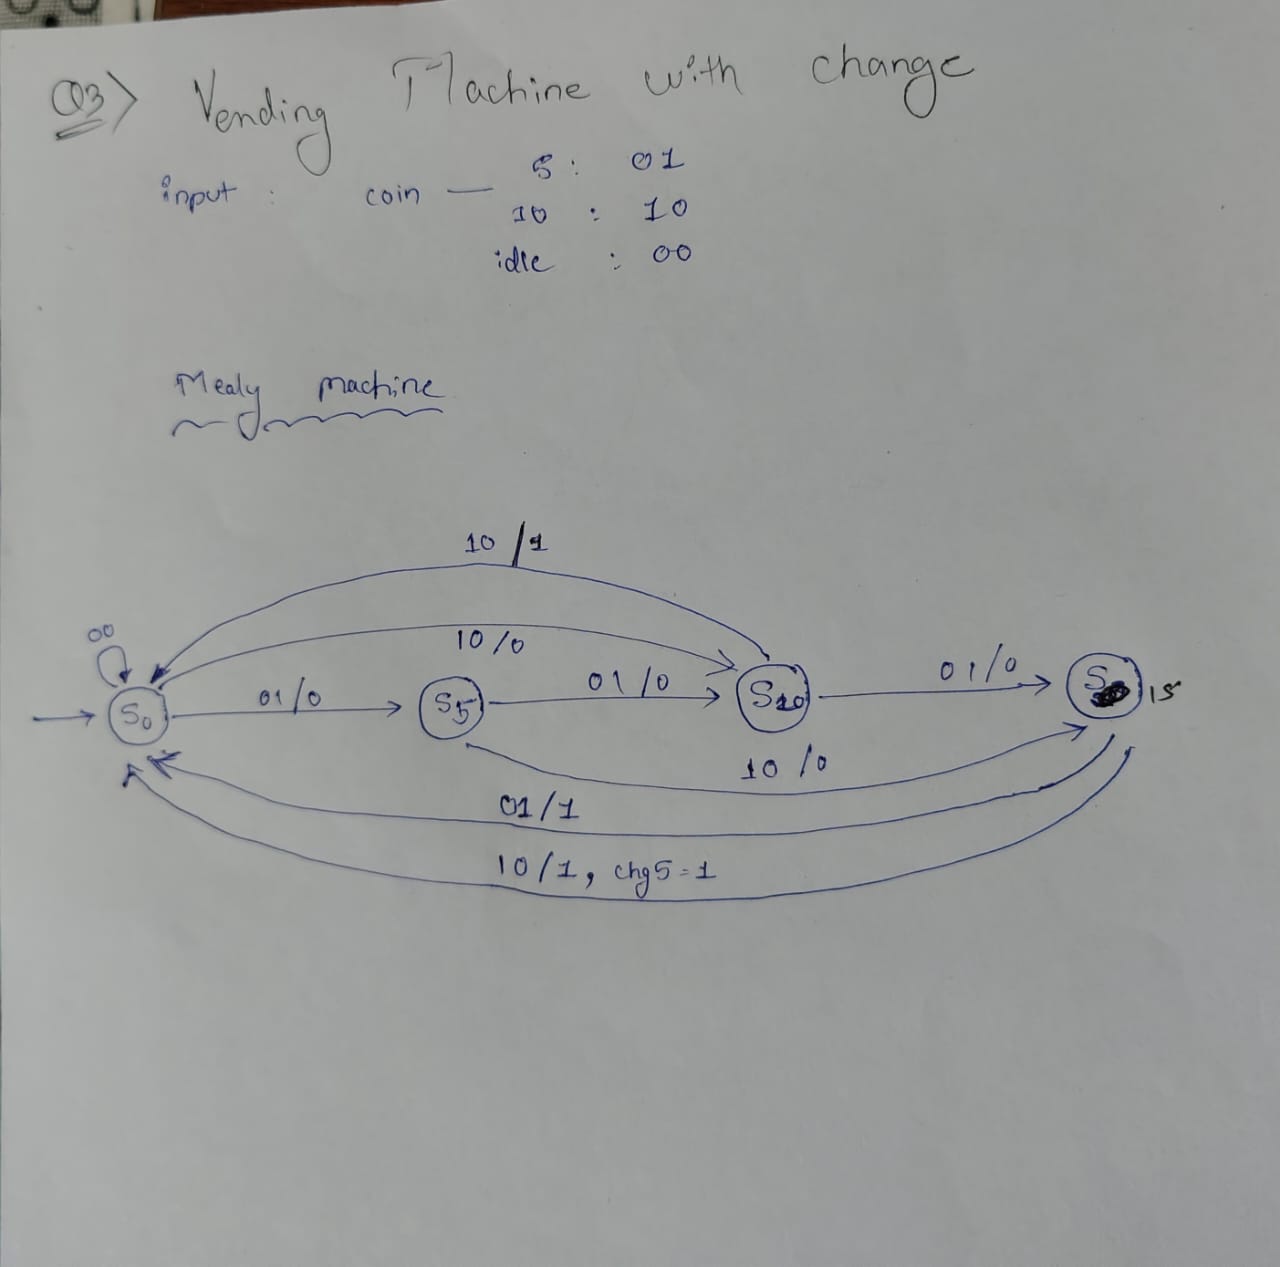 Q3> Vending Machine with change
input : coin — 5 : 01
10 : 10
idle : 00
Mealy machine
10/1
00
10/0
01/0
S0
01/0
S5
01/0
S10
S 15
10/0
01/1
10/1, chg5=1